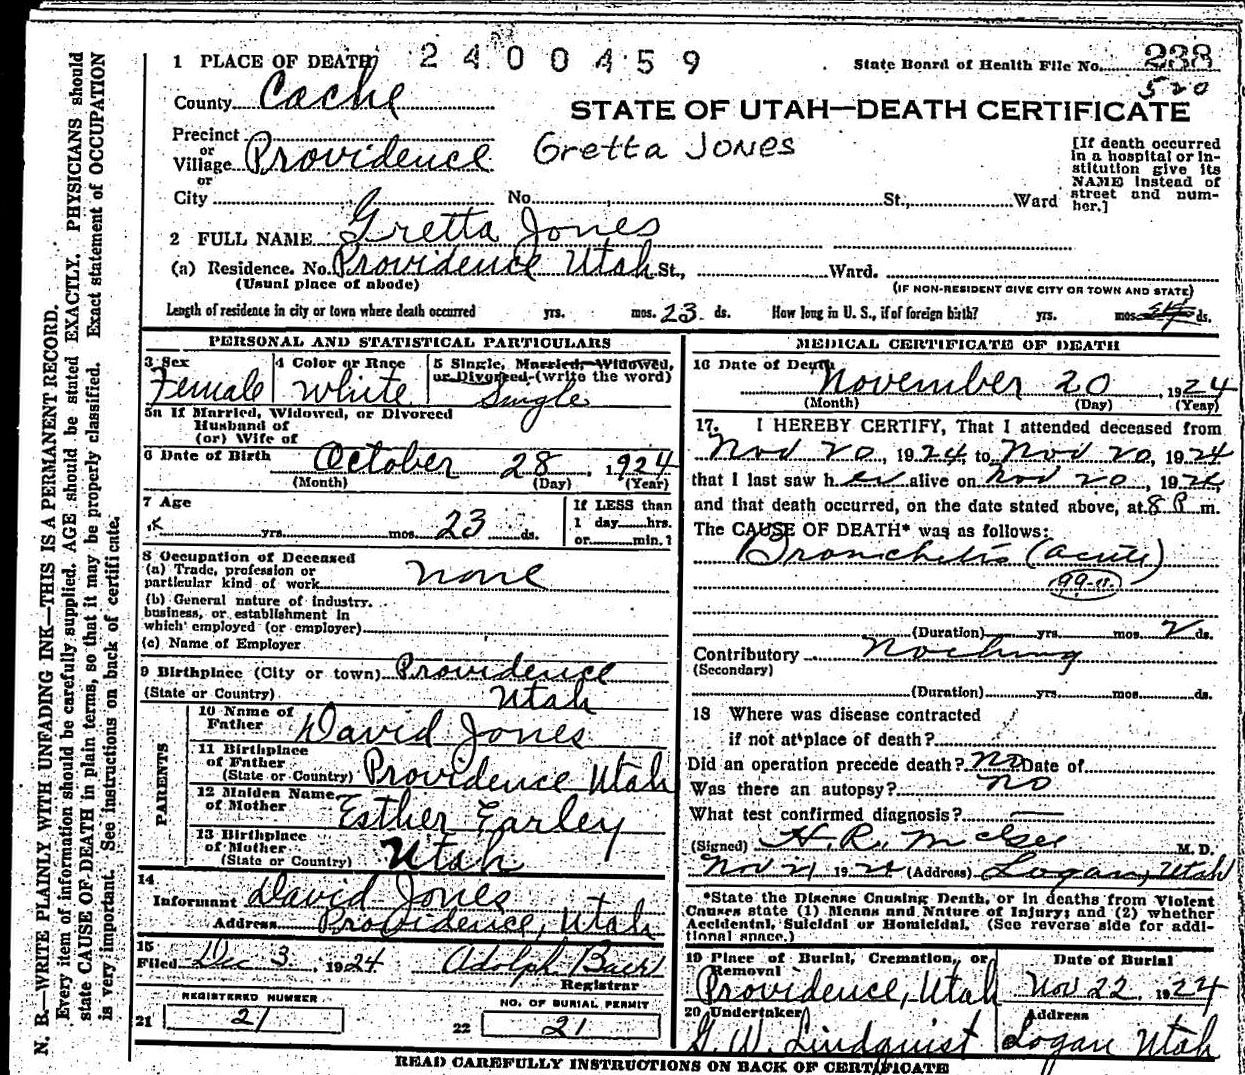 1 PLACE OF DEATH 2400459 State Board of Health File No. 238
County Cache 520
STATE OF UTAH—DEATH CERTIFICATE
Precinct
or
Village Providence Gretta Jones
or
City No. St., Ward
[If death occurred
in a hospital or in-
stitution give its
NAME instead of
street and num-
ber.]
2 FULL NAME Gretta Jones
(a) Residence. No. Providence Utah St., Ward.
(Usual place of abode) (IF NON-RESIDENT GIVE CITY OR TOWN AND STATE)
Length of residence in city or town where death occurred yrs. mos. 23 ds. How long in U. S., if of foreign birth? yrs. mos. ds.
PERSONAL AND STATISTICAL PARTICULARS
3 Sex 4 Color or Race 5 Single, Married, Widowed,
or Divorced (write the word)
Female White Single
5a If Married, Widowed, or Divorced
Husband of
(or) Wife of
6 Date of Birth October 28, 1924
(Month) (Day) (Year)
7 Age If LESS than
yrs. mos. 23 ds. 1 day hrs.
or min.?
8 Occupation of Deceased
(a) Trade, profession or
particular kind of work none
(b) General nature of industry,
business, or establishment in
which employed (or employer)
(c) Name of Employer
9 Birthplace (City or town) Providence
(State or Country) Utah
PARENTS
10 Name of
Father David Jones
11 Birthplace
of Father
(State or Country) Providence Utah
12 Maiden Name
of Mother Esther Earley
13 Birthplace
of Mother
(State or Country) Utah
14
Informant David Jones
Address Providence, Utah
15
Filed Dec 3, 1924 Adolph Baer
Registrar
REGISTERED NUMBER NO. OF BURIAL PERMIT
21 21 22 21
MEDICAL CERTIFICATE OF DEATH
16 Date of Death November 20, 1924
(Month) (Day) (Year)
17. I HEREBY CERTIFY, That I attended deceased from
Nov 20, 1924, to Nov 20, 1924
that I last saw her alive on Nov 20, 192
and that death occurred, on the date stated above, at 8 P m.
The CAUSE OF DEATH* was as follows:
Bronchetis (acute)
99-
(Duration) yrs. mos. 2 ds.
Contributory Nothing
(Secondary)
(Duration) yrs. mos. ds.
18 Where was disease contracted
if not at place of death?
Did an operation precede death? no Date of
Was there an autopsy? no
What test confirmed diagnosis?
(Signed) H. R. McGee M. D.
Nov 21 192 (Address) Logan, Utah
*State the Disease Causing Death, or in deaths from Violent
Causes state (1) Means and Nature of Injury; and (2) whether
Accidental, Suicidal or Homicidal. (See reverse side for addi-
tional space.)
19 Place of Burial, Cremation, or
Removal Date of Burial
Providence, Utah Nov 22 1924
20 Undertaker Address
G. W. Lindquist Logan Utah
READ CAREFULLY INSTRUCTIONS ON BACK OF CERTIFICATE
N. B.—WRITE PLAINLY WITH UNFADING INK—THIS IS A PERMANENT RECORD.
Every item of information should be carefully supplied. AGE should be stated EXACTLY. PHYSICIANS should
state CAUSE OF DEATH in plain terms, so that it may be properly classified. Exact statement of OCCUPATION
is very important. See instructions on back of certificate.